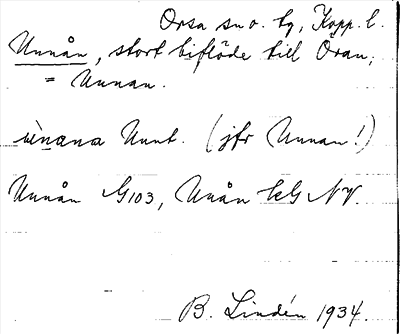 Orsa sn o. tg, Kopp. l.
Unnån, stort biflöde till Oran,
= Unnan.
ùnana Unnt. (jfr Unnan!)
Unnån G103, Unån kG NV.
B. Lindén 1934.